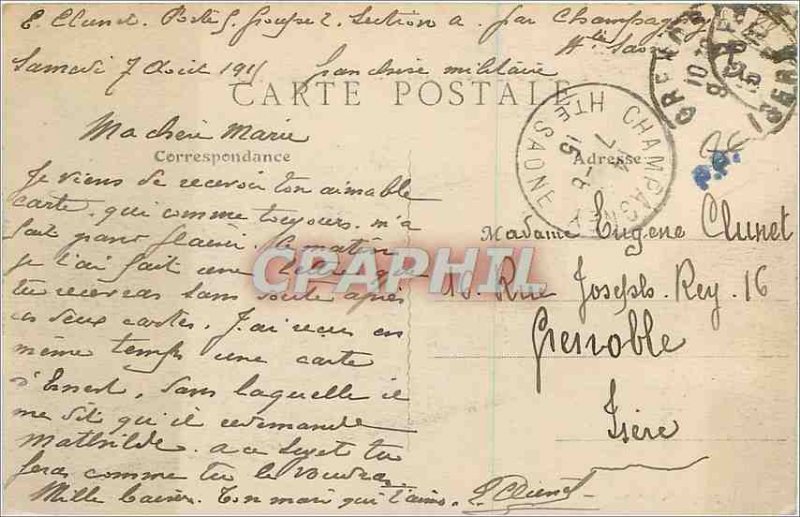 E. Clunet. Poste 5. Groupe 2. Section a. par Champagney
Hte Saône
Samedi 7 Août 1915 franchise militaire
CARTE POSTALE
Ma chère Marie
Correspondance
Adresse
CHAMPAGNEY
HTE SAONE
7-8
15
GRENOBLE
ISERE
Je viens de recevoir ton aimable
carte. qui comme toujours. m'a
fait grand plaisir. Ce matin
je t'ai fait une lettre que
tu recevras sans doute après
ces deux cartes. J'ai reçu en
même temps une carte
d'Ernest, dans laquelle il
me dit qu'il redemande
Mathilde. a ce sujet tu
feras comme tu le voudras.
Mille baisers. Ton mari qui t'aime. E. Clunet
Madame Eugène Clunet
Rue Joseph. Rey. 16
Grenoble
Isère
CPAPHIL